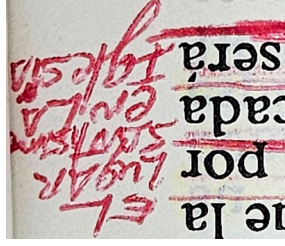 ue la
por
cada
será
EL
LUGAR
EN LA
Iglesia